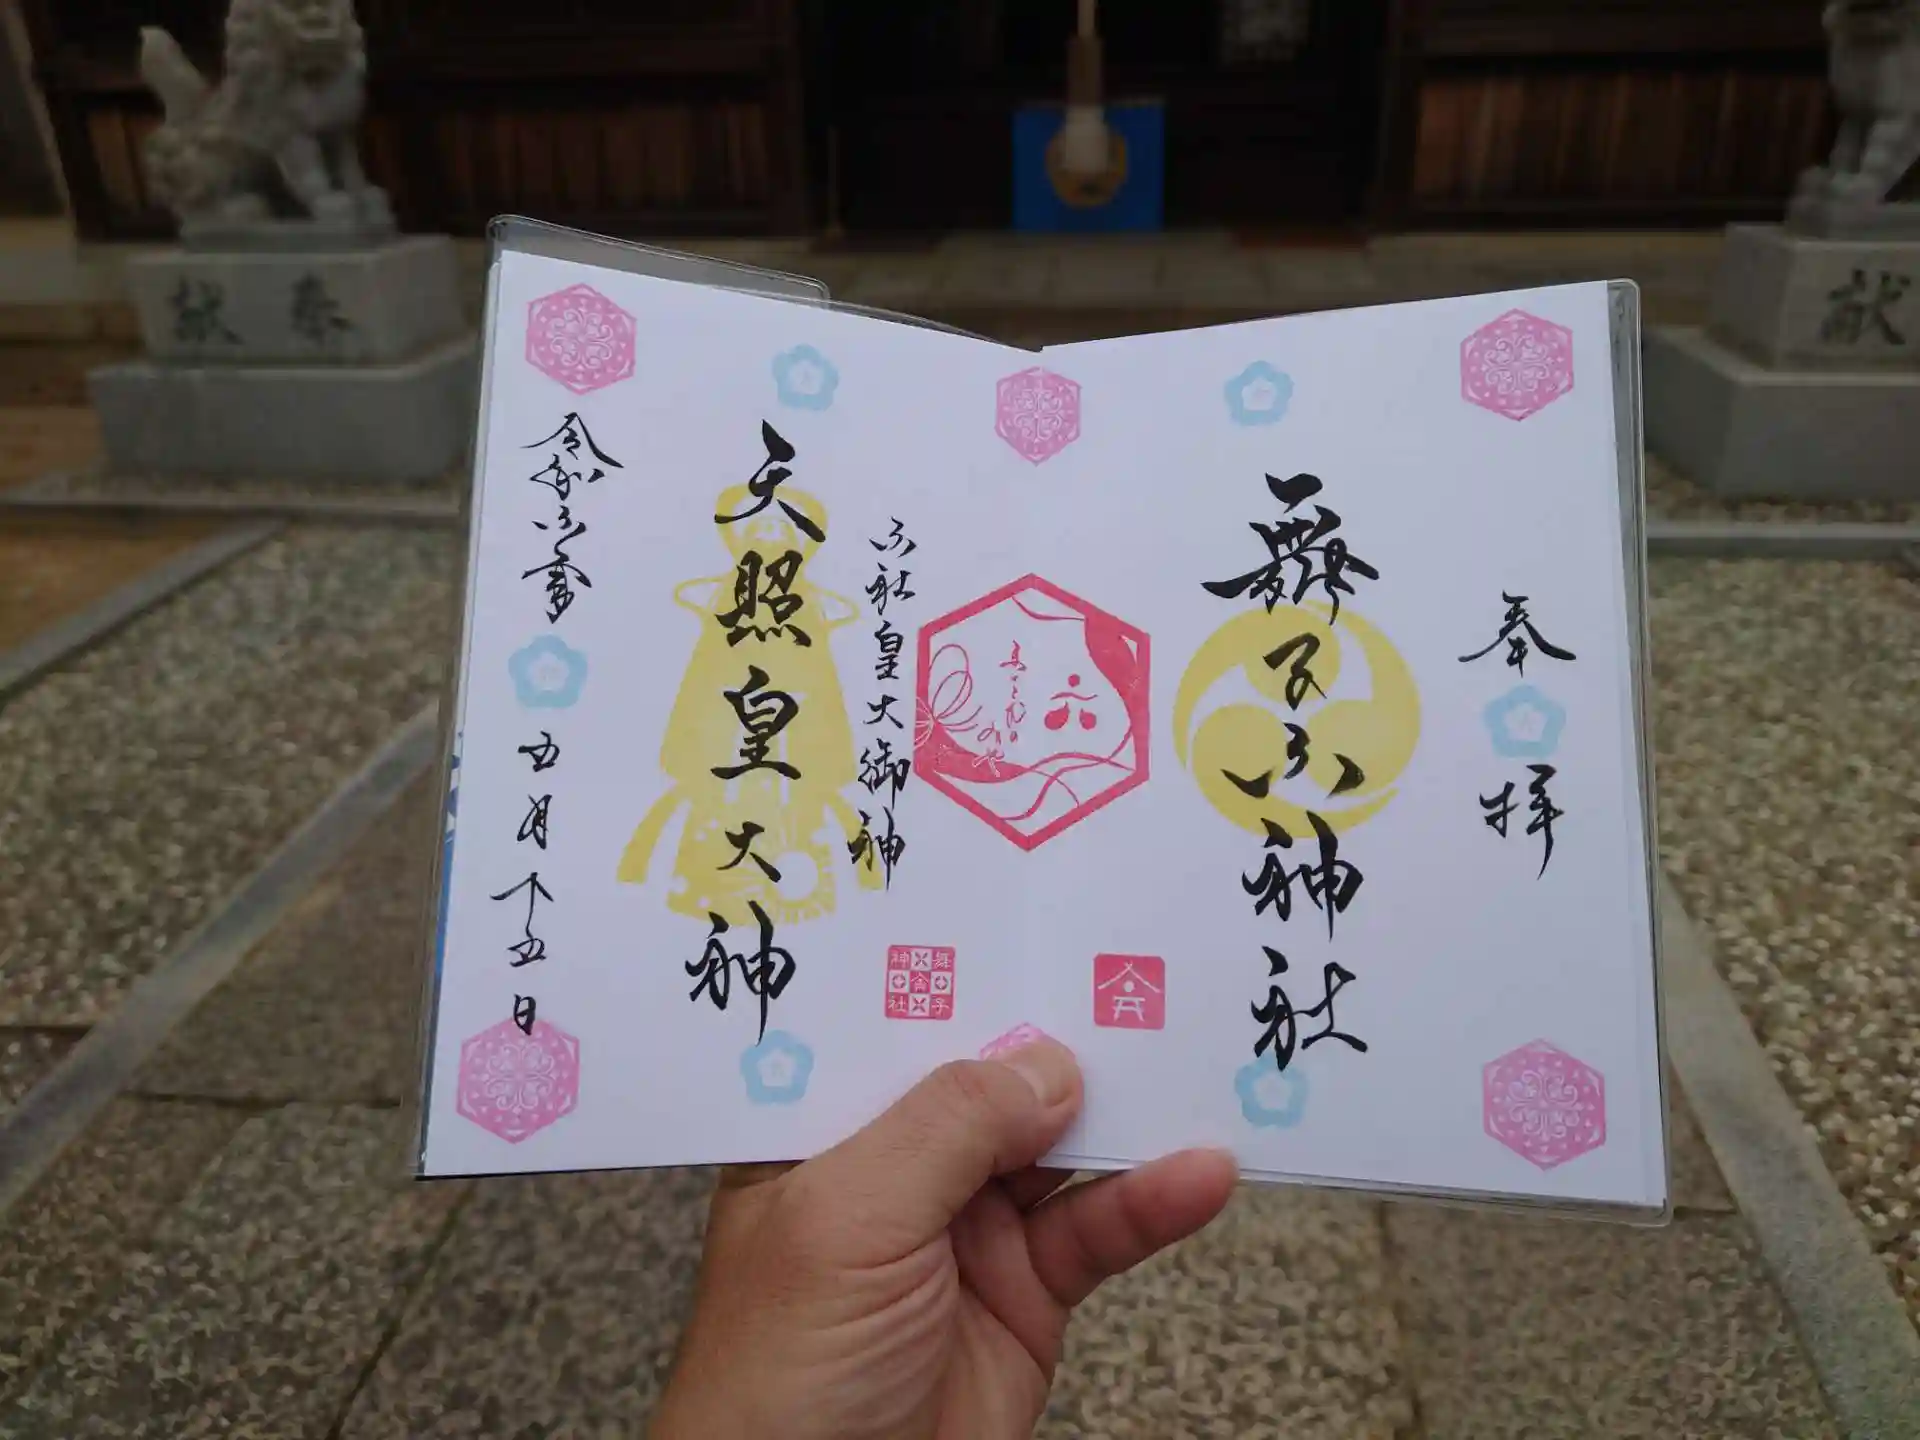 奉拝
舞子六神社
六社皇大御神
天照皇大神
令和六年
五月十五日
六
舞子
六
神社
奉献
献